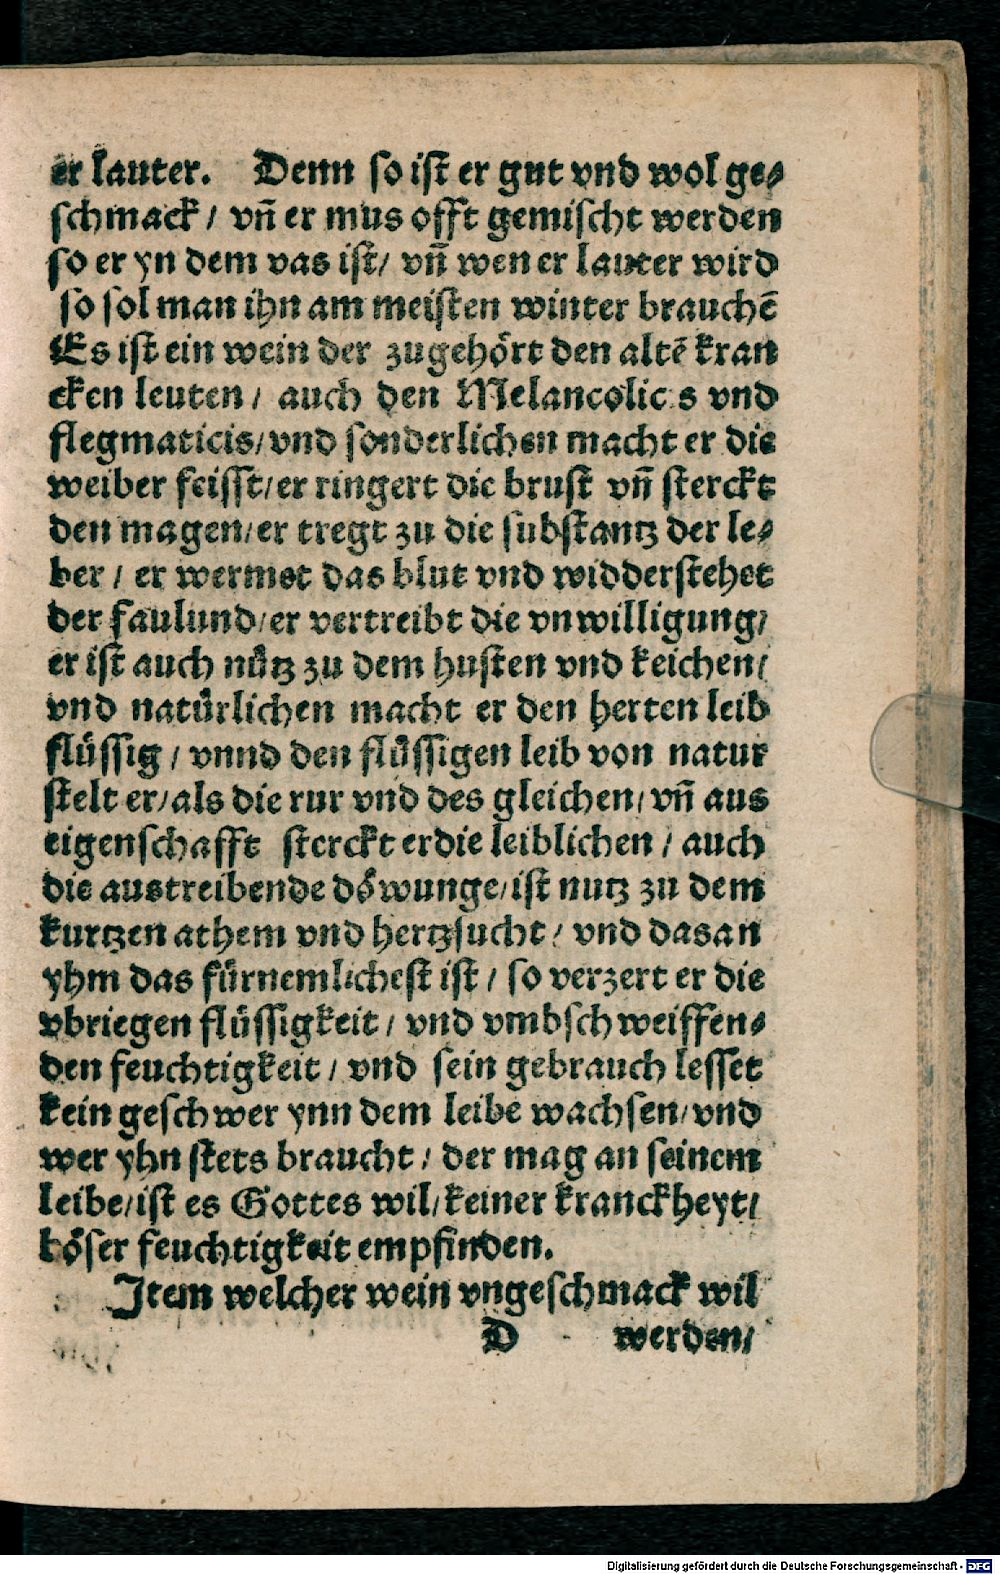 er lauter. Denn so ist er gut vnd wol ge⸗
schmack / vñ er mus offt gemischt werden
so er yn dem vas ist / vñ wen er lauter wird
so sol man ihn am meisten winter brauchē
Es ist ein wein der zugehört den altē kran
cken leuten / auch den Melancolicis vnd
flegmaticis / vnd sonderlichen macht er die
weiber feisst / er ringert die brust vñ sterckt
den magen / er tregt zu die substantz der le⸗
ber / er wermet das blut vnd widderstehet
der faulund / er vertreibt die vnwilligung /
er ist auch nütz zu dem husten vnd keichen /
vnd natürlichen macht er den herten leib
flüssig / vnnd den flüssigen leib von natur
stelt er / als die rur vnd des gleichen / vñ aus
eigenschafft sterckt erdie leiblichen / auch
die austreibende döwunge / ist nutz zu dem
kurtzen athem vnd hertzsucht / vnd dasan
yhm das fürnemlichest ist / so verzert er die
vbriegen flüssigkeit / vnd vmbschweiffen⸗
den feuchtigkeit / vnd sein gebrauch lesset
kein geschwer ynn dem leibe wachsen / vnd
wer yhn stets braucht / der mag an seinem
leibe / ist es Gottes wil / keiner kranckheyt /
böser feuchtigkeit empfinden.
Item welcher wein vngeschmack wil
D werden /
Digitalisierung gefördert durch die Deutsche Forschungsgemeinschaft - DFG